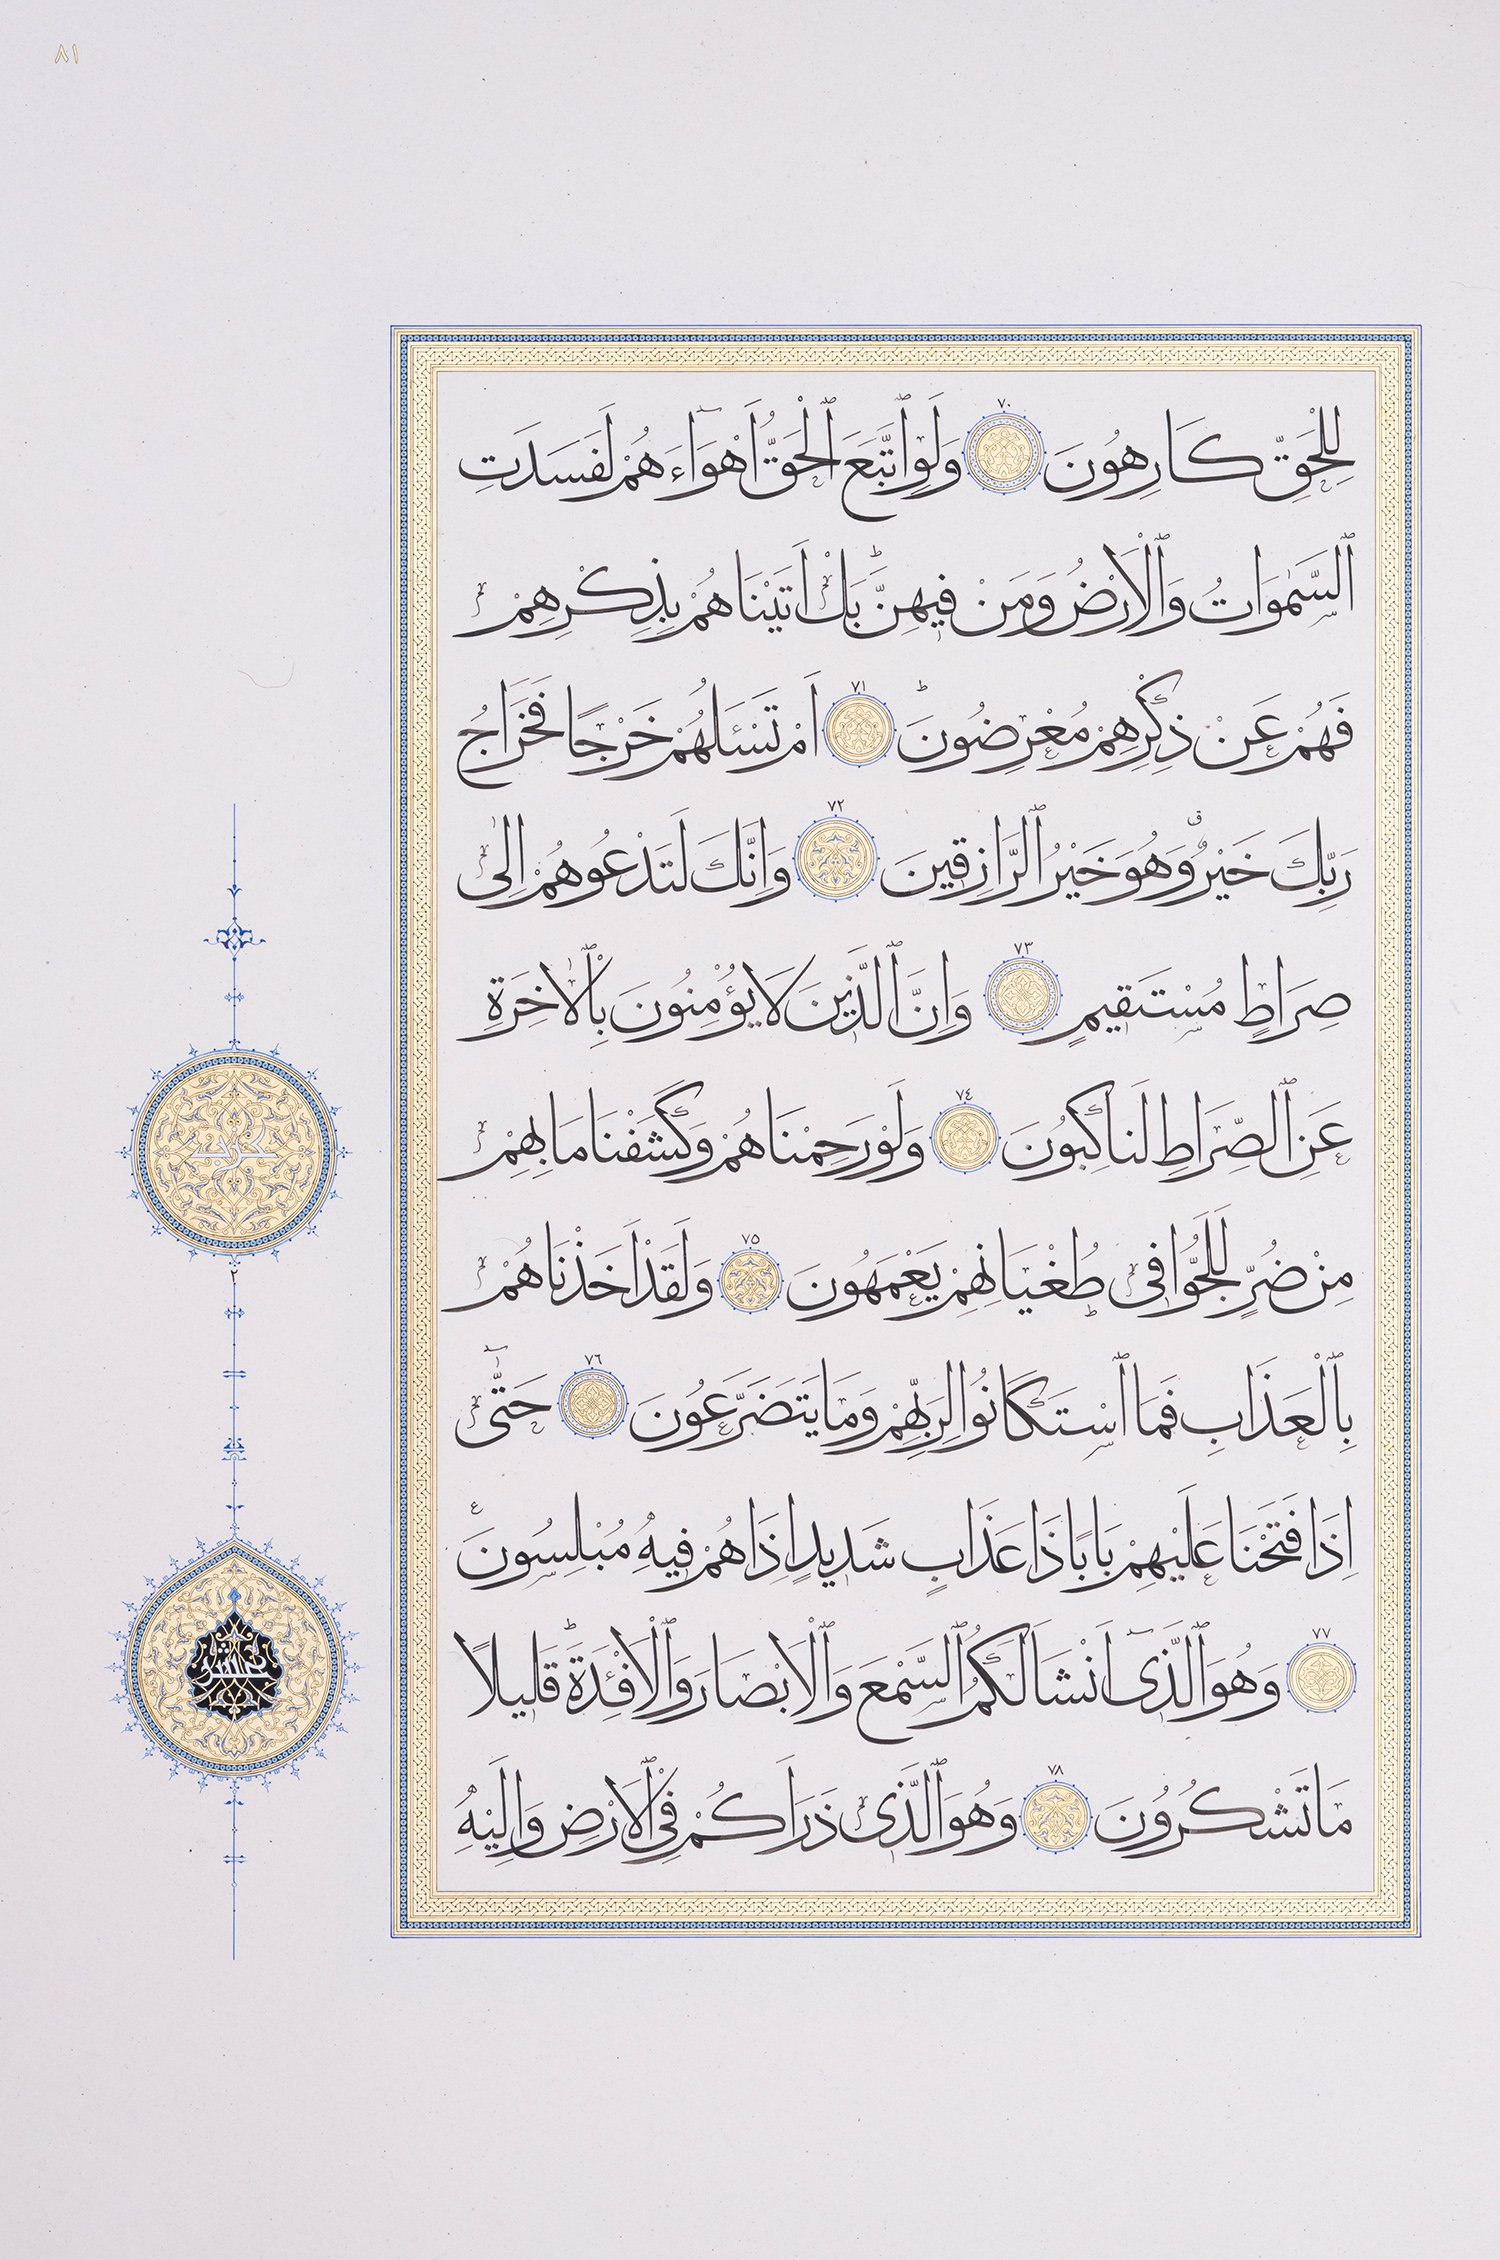 ٨١
لِلْحَقِّ كَارِهُونَ ٧٠ وَلَوِ اتَّبَعَ الْحَقُّ اَهْوَٓاءَهُمْ لَفَسَدَتِ
السَّمٰوَاتُ وَالْاَرْضُ وَمَنْ فٖيهِنَّ ط بَلْ اَتَيْنَاهُمْ بِذِكْرِهِمْ
فَهُمْ عَنْ ذِكْرِهِمْ مُعْرِضُونَ ط ٧١ اَمْ تَسْـَٔلُهُمْ خَرْجًا فَخَرَاجُ
رَبِّكَ خَيْرٌ ق وَهُوَ خَيْرُ الرَّازِقٖينَ ٧٢ وَاِنَّكَ لَتَدْعُوهُمْ اِلٰى
صِرَاطٍ مُسْتَقٖيمٍ ٧٣ وَاِنَّ الَّذٖينَ لَا يُؤْمِنُونَ بِالْاٰخِرَةِ
عَنِ الصِّرَاطِ لَنَاكِبُونَ ٧٤ وَلَوْ رَحِمْنَاهُمْ وَكَشَفْنَا مَا بِهِمْ
مِنْ ضُرٍّ لَلَجُّوا فٖى طُغْيَانِهِمْ يَعْمَهُونَ ٧٥ وَلَقَدْ اَخَذْنَاهُمْ
٢
بِالْعَذَابِ فَمَا اسْتَكَانُوا لِرَبِّهِمْ وَمَا يَتَضَرَّعُونَ ٧٦ حَتّٰٓى
اِذَا فَتَحْنَا عَلَيْهِمْ بَابًا ذَا عَذَابٍ شَدٖيدٍ اِذَا هُمْ فٖيهِ مُبْلِسُونَ ع
٧٧ وَهُوَ الَّذٖٓى اَنْشَاَ لَكُمُ السَّمْعَ وَالْاَبْصَارَ وَالْاَفْـِٔدَةَ ط قَلٖيلًا
مَا تَشْكُرُونَ ٧٨ وَهُوَ الَّذٖى ذَرَاَكُمْ فِى الْاَرْضِ وَاِلَيْهِ